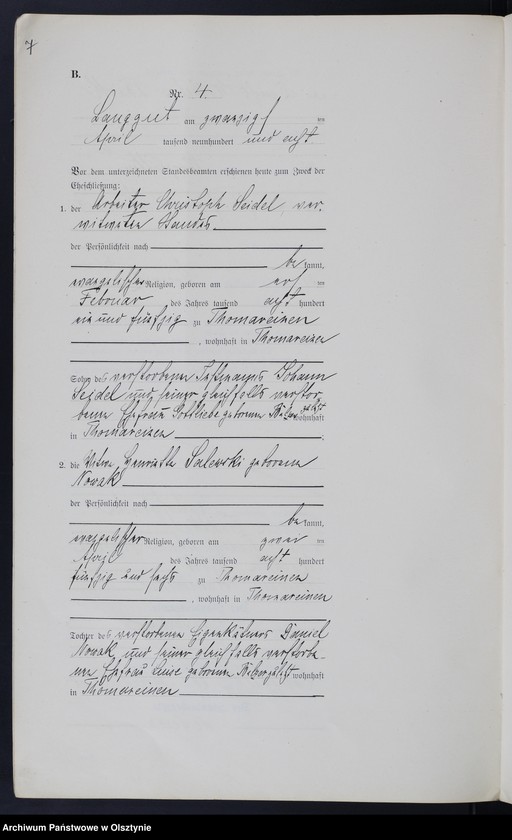 7
B.
Nr. 4.
Langgut am zwanzigsten
April tausend neunhundert und acht.
Vor dem unterzeichneten Standesbeamten erschienen heute zum Zweck der
Eheschließung:
1. der Arbeiter Christoph Seidel, ver-
witweten Standes
der Persönlichkeit nach
be kannt,
evangelischer Religion, geboren am elf ten
Februar des Jahres tausend acht hundert
ein und fünfzig zu Thomareinen
, wohnhaft in Thomareinen
Sohn des verstorbenen Johann
Seidel und seiner gleichfalls verstor-
benen Ehefrau Gottliebe geborenen wohnhaft
in Thomareinen ;
2. die Witwe Henriette Salewski geborene
Nowak
der Persönlichkeit nach
be kannt,
evangelischer Religion, geboren am zwei ten
April des Jahres tausend acht hundert
fünfzig und sechs zu Thomareinen
, wohnhaft in Thomareinen
Tochter des verstorbenen Eigenkätners Daniel
Nowak und seiner gleichfalls verstorbe-
nen Ehefrau Luise geborenen wohnhaft
in Thomareinen
Archiwum Państwowe w Olsztynie